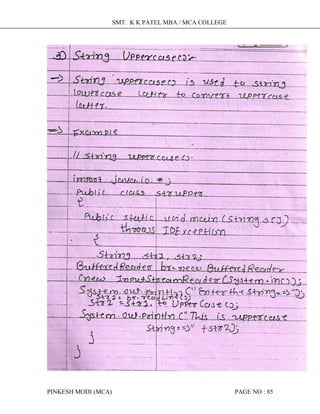 SMT. K K PATEL MBA / MCA COLLEGE
3) String Uppercase():-
→ String uppercase() is used to string
lowercase latter to convert uppercase
latter.
⇒ Example
// string uppercase().
import java.io.*;
Public class strupper
{
Public static void main (String s[])
throws IOException
{
String str1, str2;
BufferedReader br=new BufferedReader
(new InputStreamReader (System.in));
System.out.println ("Enter the string=>");
Str1= br.readLine();
Str2 = Str1. to Upper Case ();
System.out.println ("This is uppercase
String=>" +str2);
}
}
PINKESH MODI (MCA)
PAGE NO : 85